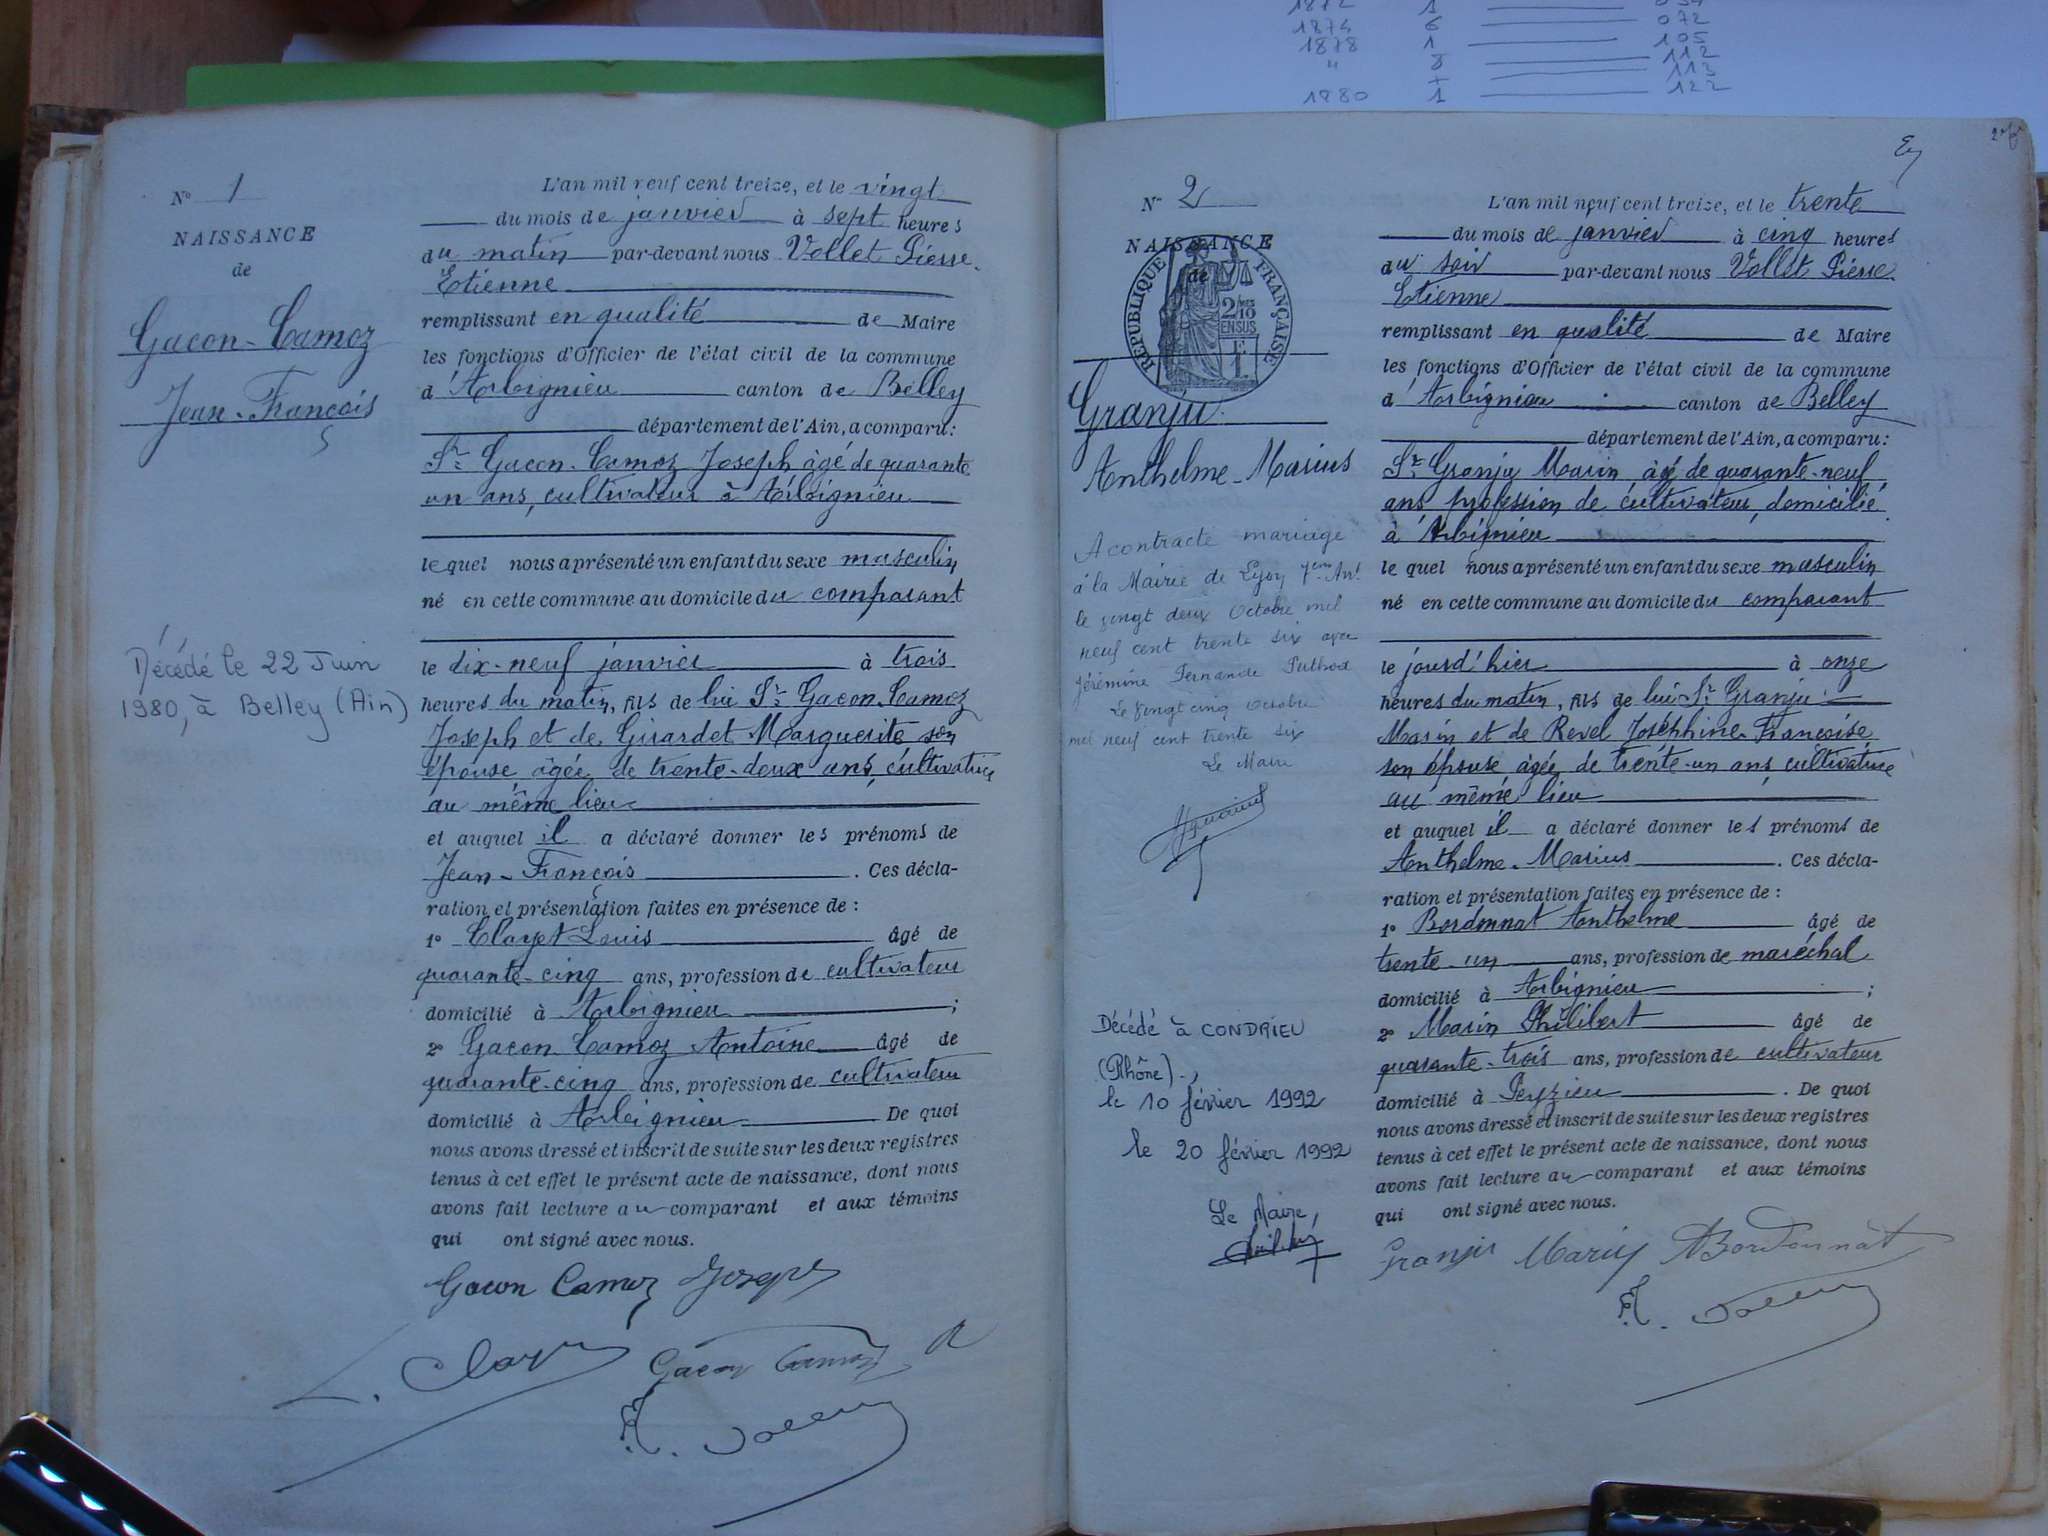 1874 6 072
1878 1 105
" 8 112
113
1880 1 122
N° 1
NAISSANCE
de
Gacon-Camoz
Jean-François
Décédé le 22 Juin
1980, à Belley (Ain)
L'an mil neuf cent treize, et le vingt
du mois de janvier à sept heures
du matin par-devant nous Vollet Pierre-
Etienne
remplissant en qualité de Maire
les fonctions d'Officier de l'état civil de la commune
d'Arbignieu canton de Belley
département de l'Ain, a comparu:
Sr Gacon-Camoz Joseph âgé de quarante
un ans, cultivateur à Arbignieu
lequel nous a présenté un enfant du sexe masculin
né en cette commune au domicile du comparant
le dix-neuf janvier à trois
heures du matin, fils de lui Sr Gacon-Camoz
Joseph et de Girardet Marguerite son
épouse âgée de trente-deux ans, cultivatrice
au même lieu
et auquel il a déclaré donner les prénoms de
Jean-François. Ces décla-
ration et présentation faites en présence de :
1° Clayet Louis âgé de
quarante-cinq ans, profession de cultivateur
domicilié à Arbignieu ;
2° Gacon-Camoz Antoine âgé de
quarante-cinq ans, profession de cultivateur
domicilié à Arbignieu. De quoi
nous avons dressé et inscrit de suite sur les deux registres
tenus à cet effet le présent acte de naissance, dont nous
avons fait lecture au comparant et aux témoins
qui ont signé avec nous.
Gacon Camoz Joseph
L. Clayet
Gacon Camoz A
E. Vollet
N° 2
NAISSANCE
de
RÉPUBLIQUE FRANÇAISE
2/10 EN SUS
Granju
Anthelme-Marius
A contracté mariage
à la Mairie de Lyon 7eme Art
le vingt deux Octobre mil
neuf cent trente six avec
Jérémine Fernande
Le vingt cinq Octobre
mil neuf cent trente six
Le Maire
Décédé à CONDRIEU
(Rhône).,
le 10 février 1992
le 20 février 1992
Le Maire,
L'an mil neuf cent treize, et le trente
du mois de janvier à cinq heures
du soir par-devant nous Vollet Pierre
Etienne
remplissant en qualité de Maire
les fonctions d'Officier de l'état civil de la commune
d'Arbignieu canton de Belley
département de l'Ain, a comparu:
Sr Granju Marin âgé de quarante-neuf
ans profession de cultivateur, domicilié
à Arbignieu
lequel nous a présenté un enfant du sexe masculin
né en cette commune au domicile du comparant
le jourd'hier à onze
heures du matin, fils de lui Sr Granju
Marin et de Revel Joséphine-Françoise
son épouse âgée de trente-un ans, cultivatrice
au même lieu
et auquel il a déclaré donner les prénoms de
Anthelme-Marius. Ces décla-
ration et présentation faites en présence de :
1° Bordonnat Anthelme âgé de
trente-un ans, profession de maréchal
domicilié à Arbignieu ;
2° Marin Philibert âgé de
quarante-trois ans, profession de cultivateur
domicilié à Peyzieu. De quoi
nous avons dressé et inscrit de suite sur les deux registres
tenus à cet effet le présent acte de naissance, dont nous
avons fait lecture au comparant et aux témoins
qui ont signé avec nous.
Granju Marin ABordonnat
E. Vollet